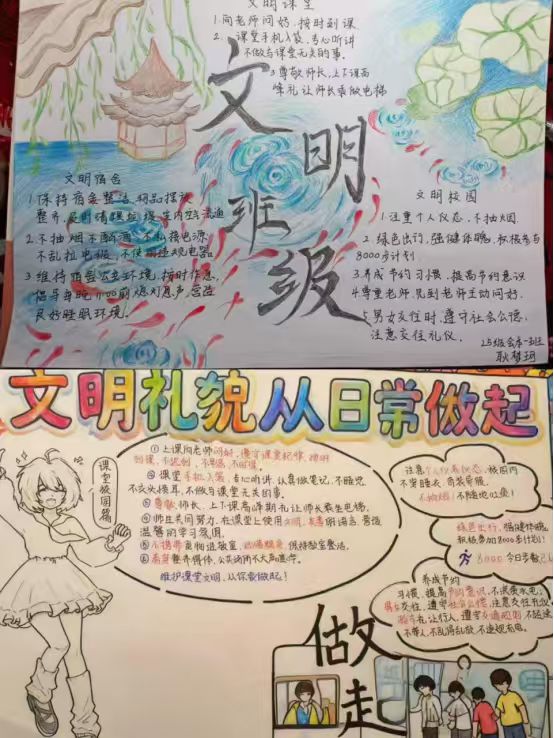 文明课堂
1.向老师问好,按时到课
2.课堂手机入袋,专心听讲
不做与课堂无关的事.
3.尊敬师长,上下课高
峰礼让师长乘做电梯
文明
班级
文明宿舍
1.保持宿舍整洁,物品摆放
整齐,及时清理垃圾,室内空气流通
2.不抽烟不酗酒,不私接电源
不乱拉电线,不使用违规电器
3.维持宿舍公共环境,按时作息,
倡导每晚11:00前熄灯息声,营造
良好睡眠环境.
文明校园
1.注重个人仪态,不抽烟.
2.绿色出行,强健体魄,积极参与
8000步计划
3.养成节约习惯,提高节约意识
4.尊重老师,见到老师主动问好.
5.男女交往时,遵守社会公德,
注意交往礼仪.
耿梦珂
文明礼貌从日常做起
课堂校园篇
①上课向老师问好,遵守课堂纪律,按时
到课,不迟到,不早退,不旷课.
②课堂手机入袋,专心听讲,认真做笔记,不睡觉
不交头接耳,不做与课堂无关的事.
③尊敬师长,上下课高峰期礼让师长乘坐电梯.
④师生共同努力,在课堂上使用文明,友善的语言,营造
温馨的学习氛围.
⑤不携带食物进教室,保持教室整洁.
⑥着装整齐得体,公共场所不大声喧哗.
维护课堂文明,从你我做起!
注意个人仪表仪态,校园内
不穿睡衣,奇装异服,
不抽烟!不随地吐痰!
绿色出行,强健体魄
积极参加8000步计划!
8000 今日步数
养成节约
习惯,提高节约意识,不浪费水电;
男女交往,遵守社会公德,注意交往礼仪
礼让行人,遵守交通规则,不超速
不带人,不乱停乱放,不违规充电.
做
起